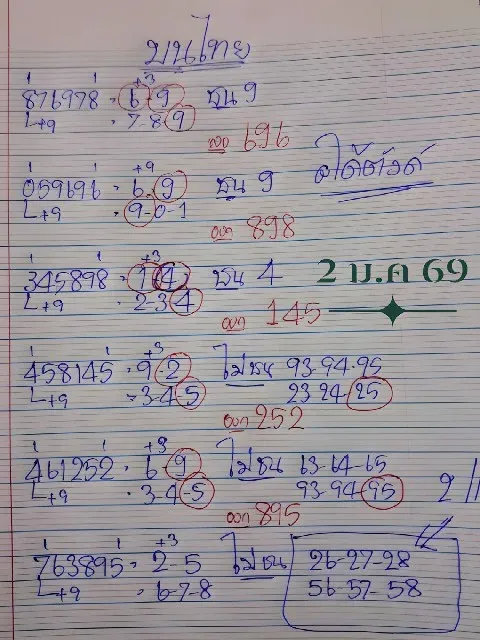 บนไทย
+3
876978 · 6 9 ชน 9
+9 · 7-8-9
ออก 696
ได้ตัวด์
+9
059696 · 6 · 9 ชน 9
+9 · 9-0-1
ออก 898
+3
345898 · 1 4 ชน 4
+9 · 2-3-4
2 ม.ค 69
ออก 145
+3
458145 · 9 · 2 ไม่ชน 93-94-95
+9 = 3-4-5 23-24-25
ออก 252
+3
461252 · 6 · 9 ไม่ชน 63-64-65
+9 · 3-4-5 93-94-95
ออก 895
+3
763895 = 2-5 ไม่ชน 26-27-28
+9 = 6-7-8 56-57-58